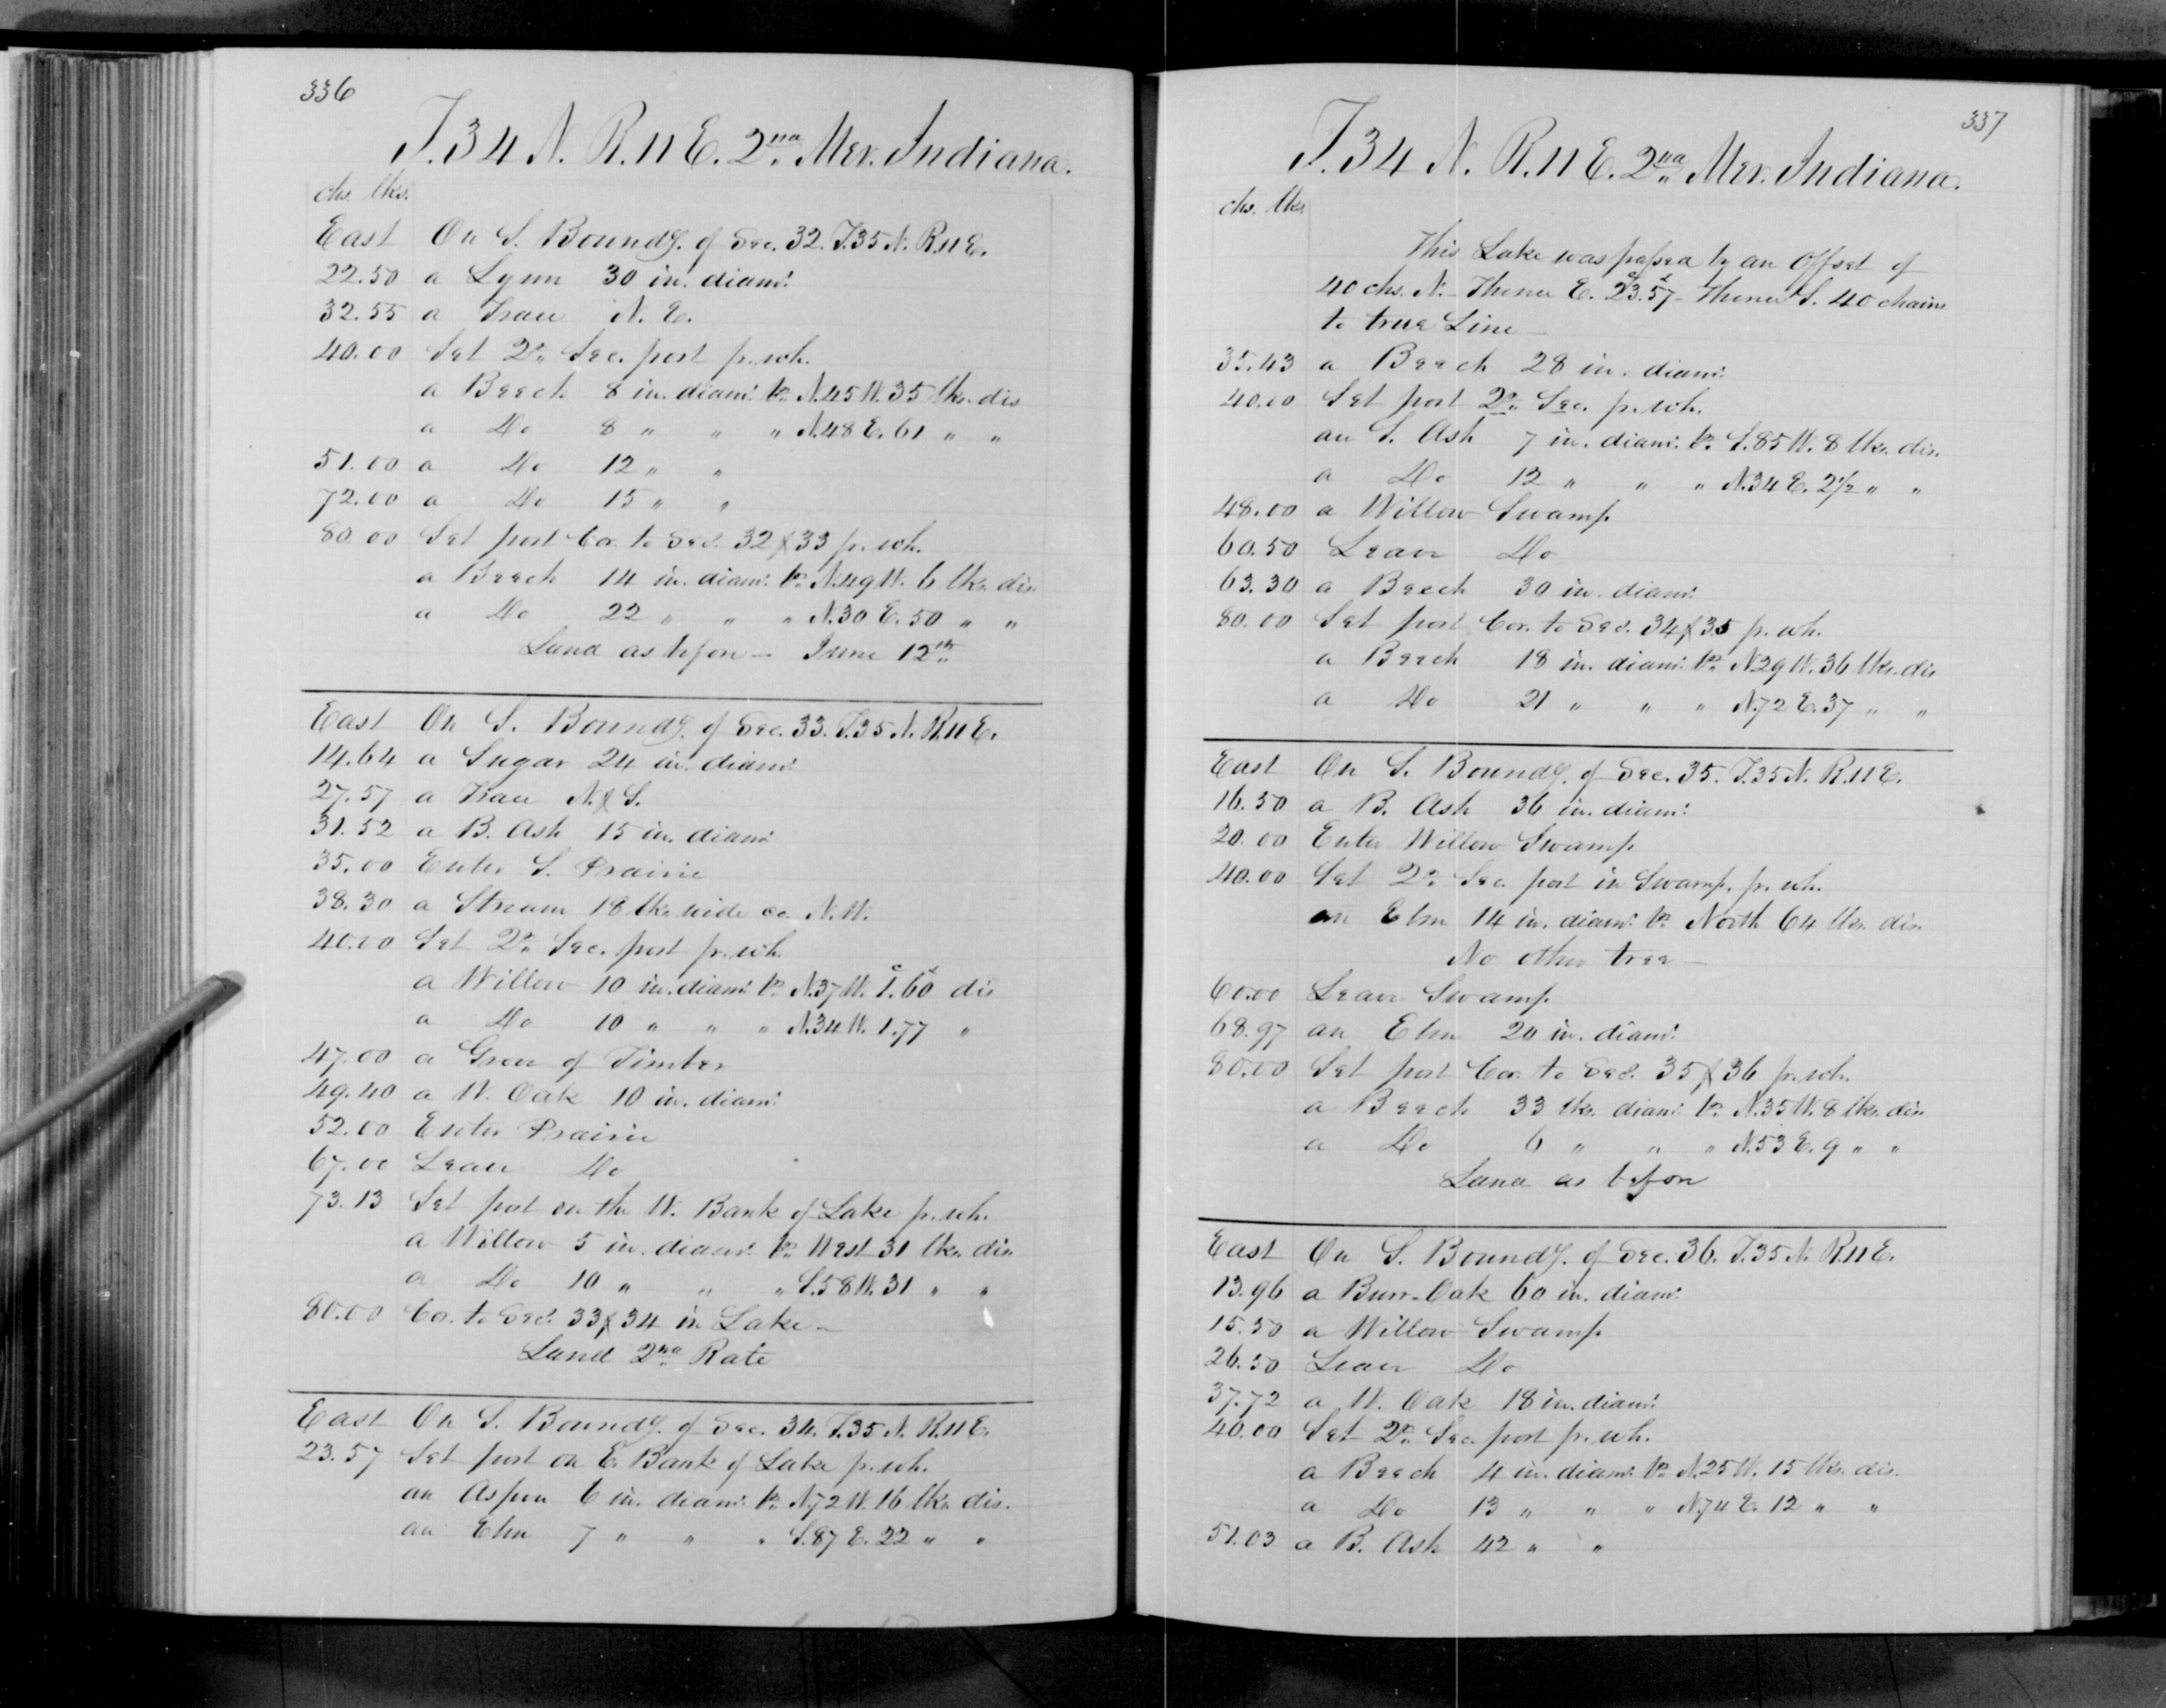 336
T. 34 N. R. 11 E. 2nd Mer. Indiana.
chs. lks.
East On S. Boundy. of Sec. 32. T. 35 N. R. 11 E.
22.50 a Lynn 30 in. diamr.
32.55 a Trace N. E.
40.00 Set 2r. Sec. post fr. wh.
a Beech 8 in. diamr. br. N. 45 W. 35 lks. dis
a Do 8 " " " N. 48 E. 61 " "
51.00 a Do 12 " "
72.00 a Do 15 " "
80.00 Set post Cor. to Secs. 32 & 33 fr. wh.
a Beech 14 in. diamr. br. N. 49 W. 6 lks. dis.
a Do 22 " " " N. 30 E. 50 " "
Land as before — June 12th
East On S. Boundy. of Sec. 33. T. 35 N. R. 11 E.
14.64 a Sugar 24 in. diamr.
27.57 a Trace N. & S.
31.52 a B. Ash 15 in. diamr.
35.00 Enter S. Prairie
38.30 a Stream 18 lks. wide co. N. W.
40.00 Set 2r. Sec. post fr. wh.
a Willow 10 in. diamr. br. N. 37 W. 1.60 dis
a Do 10 " " " N. 34 W. 1.77 "
47.00 a Grove of Timber
49.40 a W. Oak 10 in. diamr.
52.00 Enter Prairie
67.00 Leave Do
73.13 Set post on the W. Bank of Lake fr. wh.
a Willow 5 in. diamr. br. West 31 lks. dis.
a Do 10 " " " S. 58 W. 31 " "
80.00 Cor. to Secs. 33 & 34 in Lake —
Land 2nd Rate
East On S. Boundy. of Sec. 34. T. 35 N. R. 11 E.
23.57 Set post on E. Bank of Lake fr. wh.
an Aspen 6 in. diamr. br. N. 72 W. 16 lks. dis.
an Elm 7 " " " S. 87 E. 22 " "
337
T. 34 N. R. 11 E. 2nd Mer. Indiana.
chs. lks.
This Lake was passed by an Offset of
40 chs. N. — Thence E. 23.57 — Thence S. 40 chains
to true Line —
35.43 a Beech 28 in. diamr.
40.00 Set post 2r. Sec. fr. wh.
an S. Ash 7 in. diamr. br. S. 85 W. 8 lks. dis.
a Do 12 " " " N. 34 E. 2½ " "
48.00 a Willow Swamp
60.50 Leave Do
63.30 a Beech 30 in. diamr.
80.00 Set post Cor. to Secs. 34 & 35 fr. wh.
a Beech 18 in. diamr. br. N. 29 W. 36 lks. dis
a Do 21 " " " N. 72 E. 37 " "
East On S. Boundy. of Sec. 35. T. 35 N. R. 11 E.
16.50 a B. Ash 36 in. diamr.
20.00 Enter Willow Swamp
40.00 Set 2r. Sec. post in Swamp. fr. wh.
an Elm 14 in. diamr. br. North 64 lks. dis.
No other tree —
60.00 Leave Swamp
68.97 an Elm 20 in. diamr.
80.00 Set post Cor. to Secs. 35 & 36 fr. wh.
a Beech 33 lks. diamr. br. N. 35 W. 8 lks. dis.
a Do 6 " " " N. 53 E. 9 " "
Land as before
East On S. Boundy. of Sec. 36. T. 35 N. R. 11 E.
13.96 a Burr-Oak 60 in. diamr.
15.50 a Willow Swamp
26.50 Leave Do
37.72 a W. Oak 18 in. diamr.
40.00 Set 2r. Sec. post fr. wh.
a Beech 4 in. diamr. br. N. 25 W. 15 lks. dis.
a Do 13 " " " N. 74 E. 12 " "
51.03 a B. Ash 42 " "